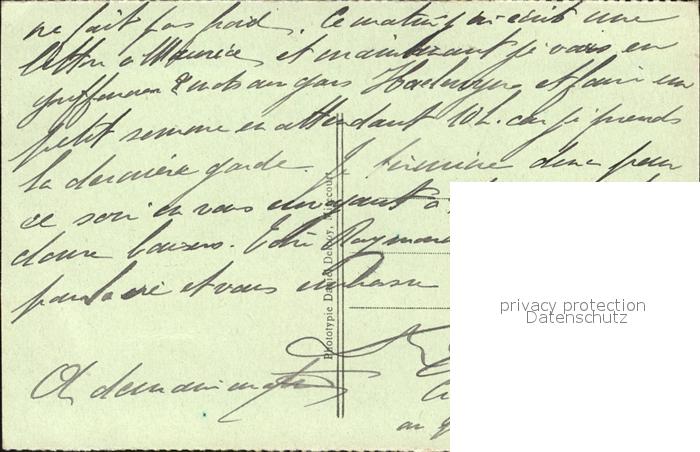 ne fait pas froid. Ce matin j'ai écrit une
lettre à Maurice et maintenant je vais en
griffonner 2 mots aux gars et faire un
petit somme en attendant 10h. car je prends
la dernière garde. Je termine donc pour
ce soir en vous envoyant à
doux baisers. Raymond
pour la vie et vous embrasse
A demain matin
au
Phototypie Daniel Delroy, Mirecourt
privacy protection
Datenschutz